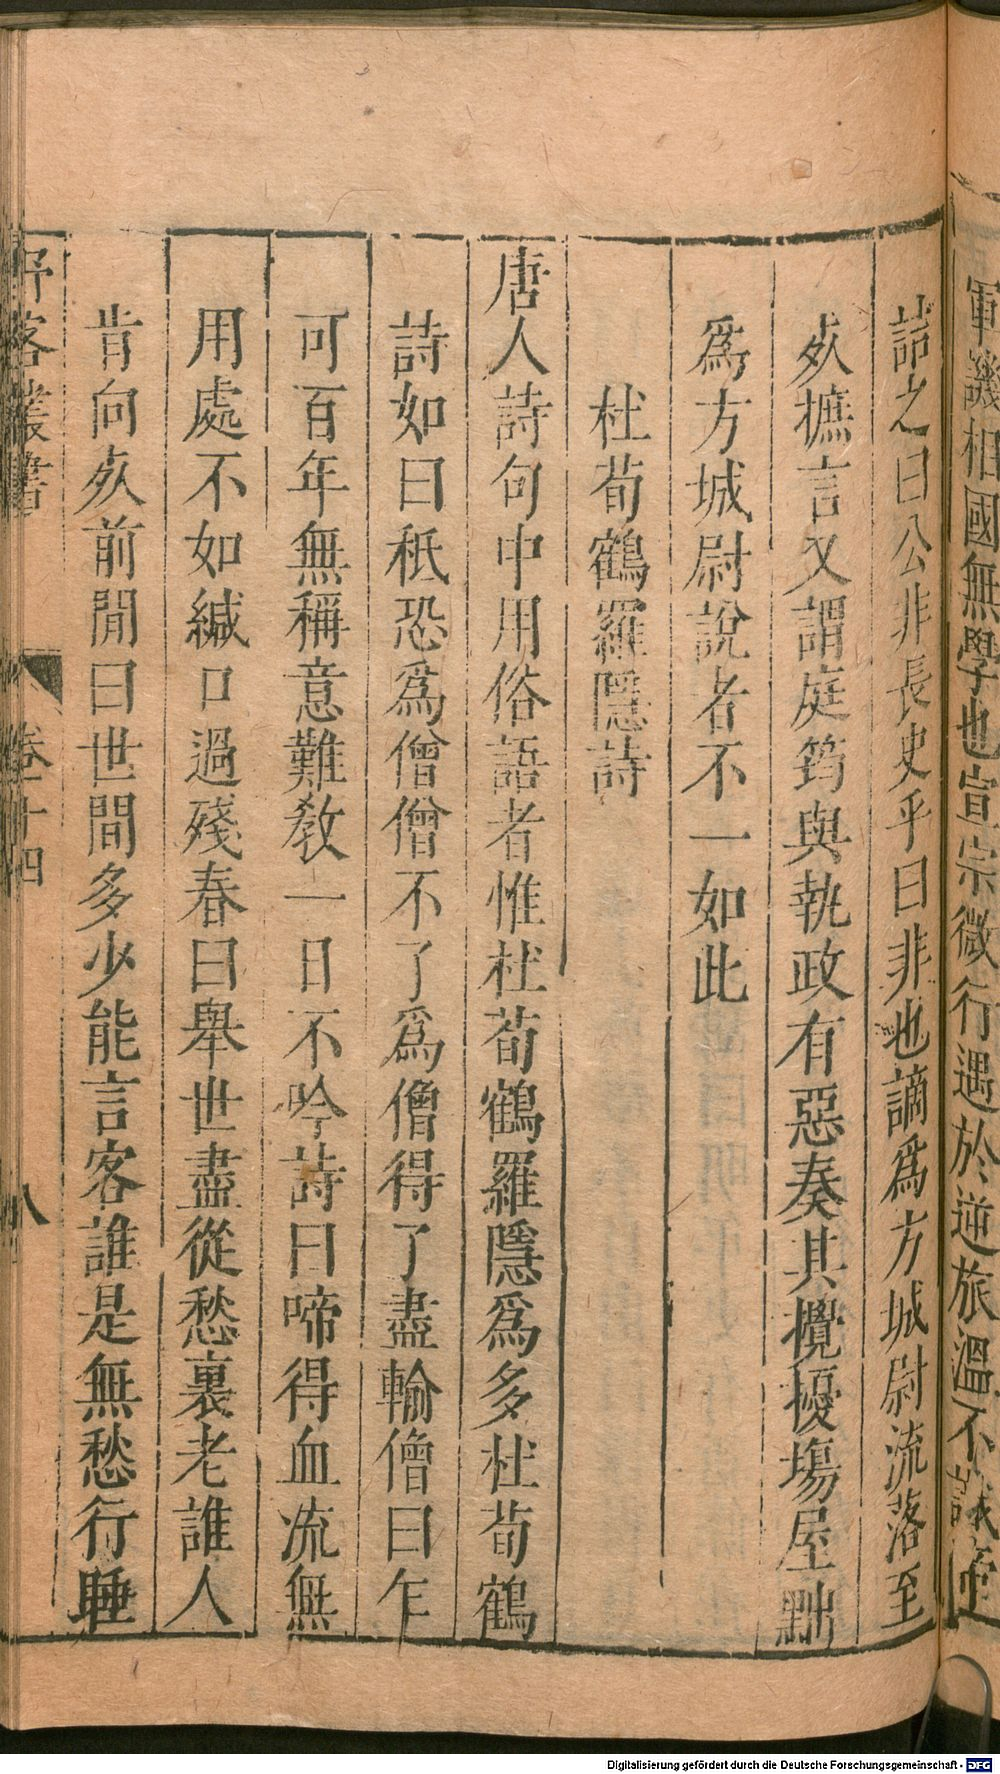 軍譏相國無學也宣宗微行遇於逆旅溫不識
詰之曰公非長史乎曰非也謫爲方城尉流落至
死摭言又謂庭筠與執政有惡奏其攪擾塲屋黜
爲方城尉說者不一如此
杜荀鶴羅隱詩
唐人詩句中用俗語者惟杜荀鶴羅隱爲多杜荀鶴
詩如曰秪恐爲僧僧不了爲僧得了盡輸僧曰乍
可百年無稱意難敎一日不吟詩曰啼得血流無
用處不如緘口過殘春曰舉世盡從愁裏老誰人
肯向死前閒曰世間多少能言客誰是無愁行睡
野客叢書
卷十四
八
Digitalisierung gefördert durch die Deutsche Forschungsgemeinschaft - DFG